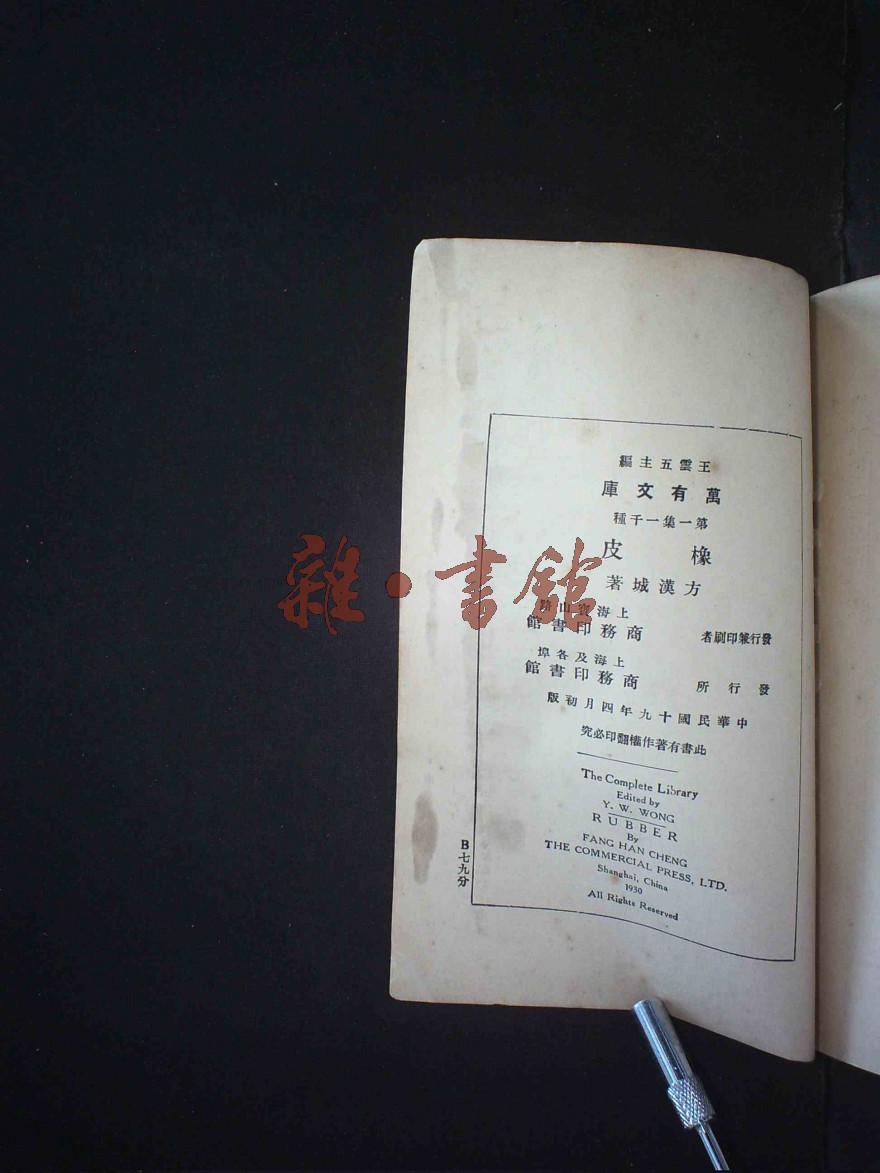 王雲五主編
萬有文庫
第一集一千種
橡皮
方漢城著
上海寶山路
發行兼印刷者 商務印書館
上海及各埠
發行所 商務印書館
中華民國十九年四月初版
此書有著作權翻印必究
The Complete Library
Edited by
Y. W. WONG
RUBBER
By
FANG HAN CHENG
THE COMMERCIAL PRESS, LTD.
Shanghai, China
1930
All Rights Reserved
B七九分
雜·書館